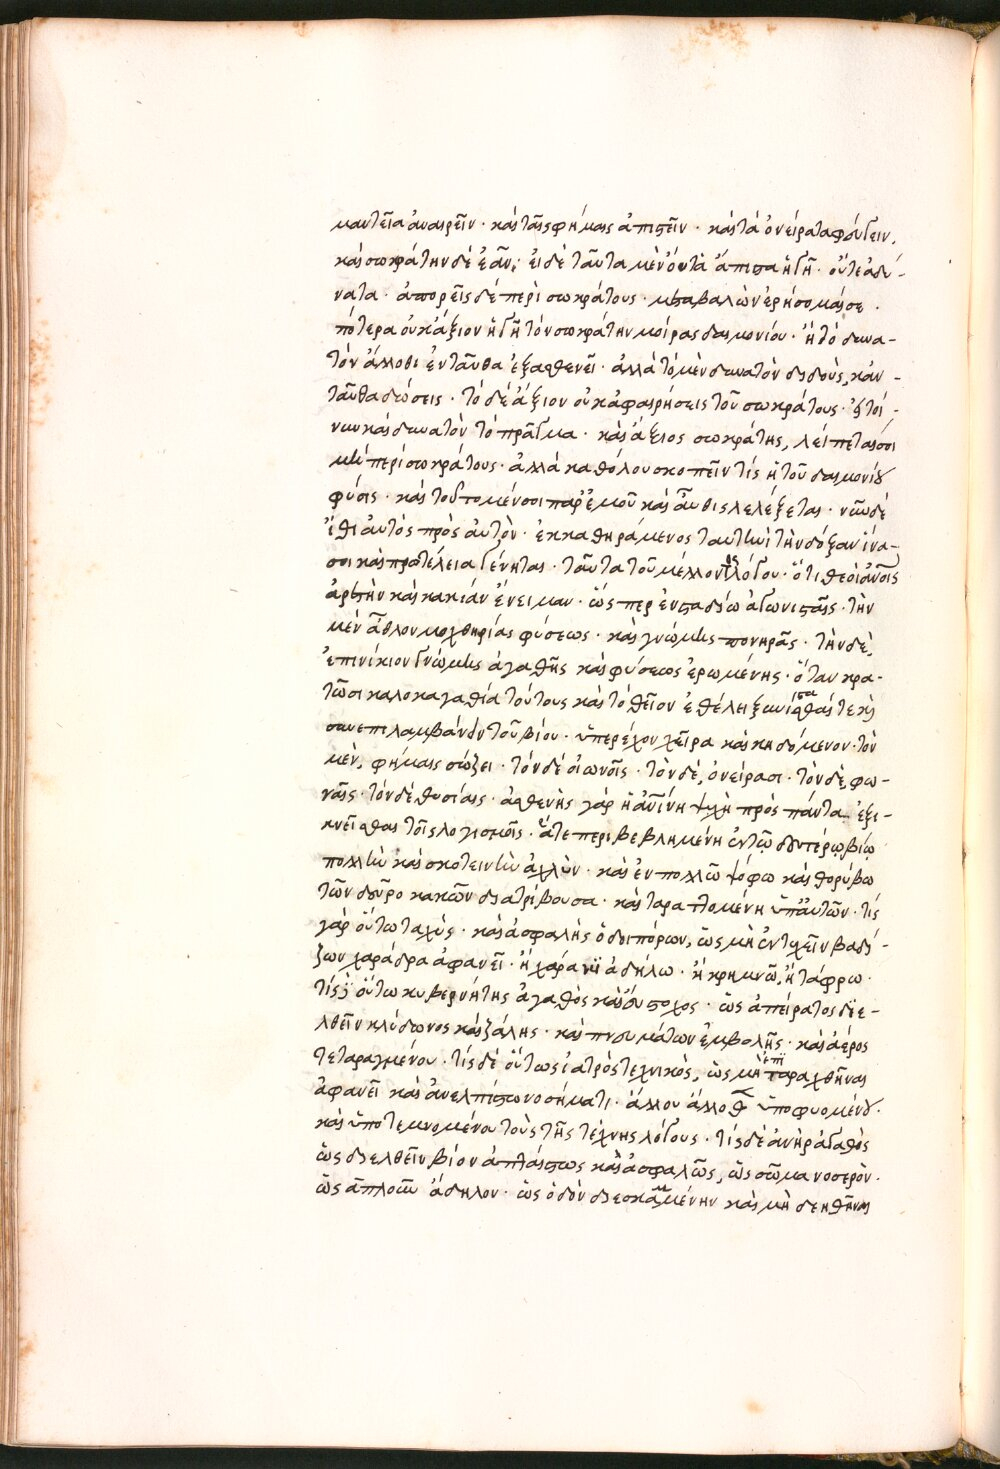 μαντεῖα ἀναιρεῖν · καὶ ταῖς φήμαις ἀπιστεῖν · καὶ τὰ ὀνείρατα φεύγειν,
καὶ σωκράτην δὲ ἐᾶν; εἰ δὲ ταῦτα μὲν οὐτὰ ἄπιστα ἡγῇ · οὔτε ἀδύ-
νατα · ἀπορεῖς δὲ περὶ σωκράτους · μεταβαλὼν ἐρήσομαί σε ·
πότερα οὐκ ἄξιον ἡγῇ τὸν σωκράτην μοίρας δαιμονίου · ἢ τὸ δυνα-
τὸν ἄλλοθι ἐνταῦθα ἐξασθενεῖ · ἀλλὰ τὸ μὲν δυνατὸν διδοὺς, κἀν-
ταῦθα δώσεις · τὸ δὲ ἄξιον οὐκ ἀφαιρήσεις τοῦ σωκράτους · εἰ τοί-
νυν καὶ δυνατὸν τὸ πρᾶγμα · καὶ ἄξιος σωκράτης, λείπεταί σοι
μὴ περὶ σωκράτους · ἀλλὰ καθόλου σκοπεῖν τίς ἡ τοῦ δαιμονίου
φύσις · καὶ τοῦτο μέν σοι παρ' ἐμοῦ καὶ αὖθις λελέξεται · νῦν δὲ
ἴθι αὐτὸς πρὸς αὑτὸν · ἐκκαθηράμενος ταυτηνὶ τὴν δόξαν ἵνα
σοι καὶ προτέλεια γένηται · ταῦτα τοῦ μέλλοντος λόγου · ὅτι θεοὶ ἀνοις
ἀρετὴν καὶ κακίαν ἔνειμαν · ὥς περ ἐν σταδίω ἀγωνισταῖς · τὴν
μὲν ἆθλον μοχθηρίας φύσεως · καὶ γνώμης πονηρᾶς · τὴν δὲ,
ἐπινίκιον γνώμης ἀγαθῆς καὶ φύσεως ἐρωμένης · ὅταν κρα-
τῶσι καλοκαγαθία τούτους καὶ τὸ θεῖον ἐθέλει ξυνίστασθαί τε καὶ
συνεπιλαμβάνειν τοῦ βίου · ὑπερέχον χεῖρα καὶ κηδόμενον · τὸν
μὲν, φήμαις σώζει · τὸν δὲ οἰωνοῖς · τὸν δὲ, ὀνείρασι · τὸν δὲ, φω-
ναῖς · τὸν δὲ θυσίαις · ἀσθενὴς γὰρ ἡ ἀνίνη ψυχὴ πρὸς πάντα ἐξι-
κνεῖσθαι τοῖς λογισμοῖς · ἅτε περιβεβλημένη ἐν τῷ δευτέρῳ βίῳ
πολλὴν καὶ σκοτεινὴν ἀχλὺν · καὶ ἐν πολλῶ ψόφω καὶ θορύβω
τῶν δεῦρο κακῶν διατρίβουσα · καὶ ταραττομένη ὑπ' αὐτῶν · τίς
γὰρ οὕτω ταχὺς · καὶ ἀσφαλὴς ὁδοιπόρων, ὡς μὴ ἐντυχεῖν βαδί-
ζων χαράδρα ἀφανεῖ · ἢ χάρακι ἀδήλω · ἢ κρημνῶ, ἢ τάφρω ·
τίς οὕτω κυβερνήτης ἀγαθὸς καὶ εὔστοχος · ὡς ἀπείρατος διε-
λθεῖν κλύδωνος καὶ ζάλης · καὶ πνευμάτων ἐμβολῆς · καὶ ἀέρος
τεταραγμένου · τίς δὲ οὕτως ἰατρὸς τεχνικὸς, ὡς μὴ ἐπιταραχθῆναι
ἀφανεῖ καὶ ἀνελπίστω νοσήματι · ἄλλου ἄλλοθεν ὑποφυομένου ·
καὶ ὑποτεμνομένα τοὺς τῆς τέχνης λόγους · τίς δὲ ἀνὴρ ἀγαθὸς
ὡς διελθεῖν βίον ἀπλάστως καὶ ἀσφαλῶς, ὡς σῶμα νοσερὸν ·
ὡς ἁπλοῦν ἄδηλον · ὡς ὁδὸν διεσκαμμένην καὶ μὴ δεηθῆναι